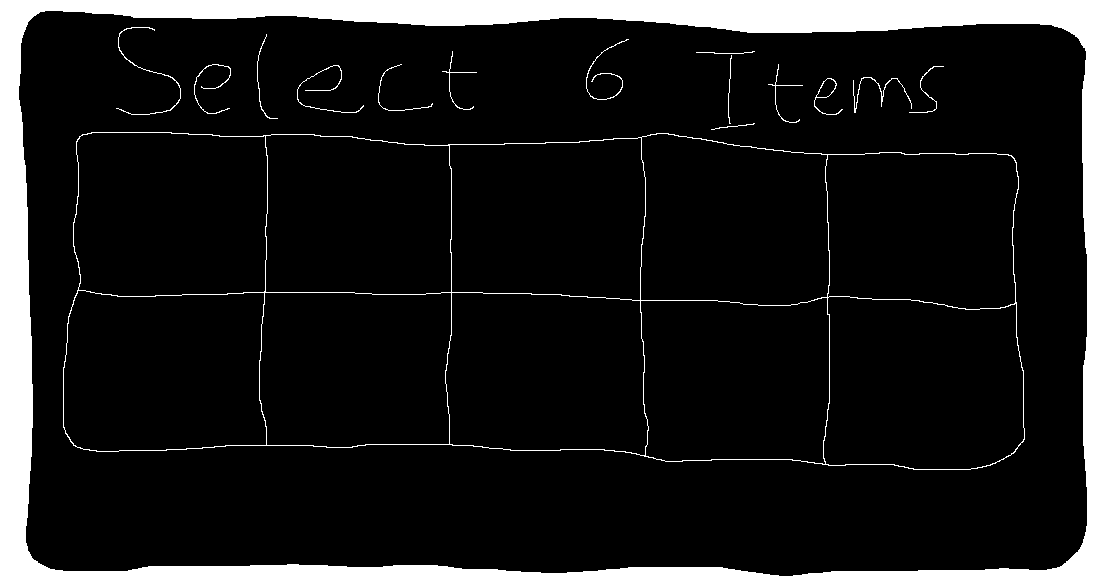 Select 6 Items